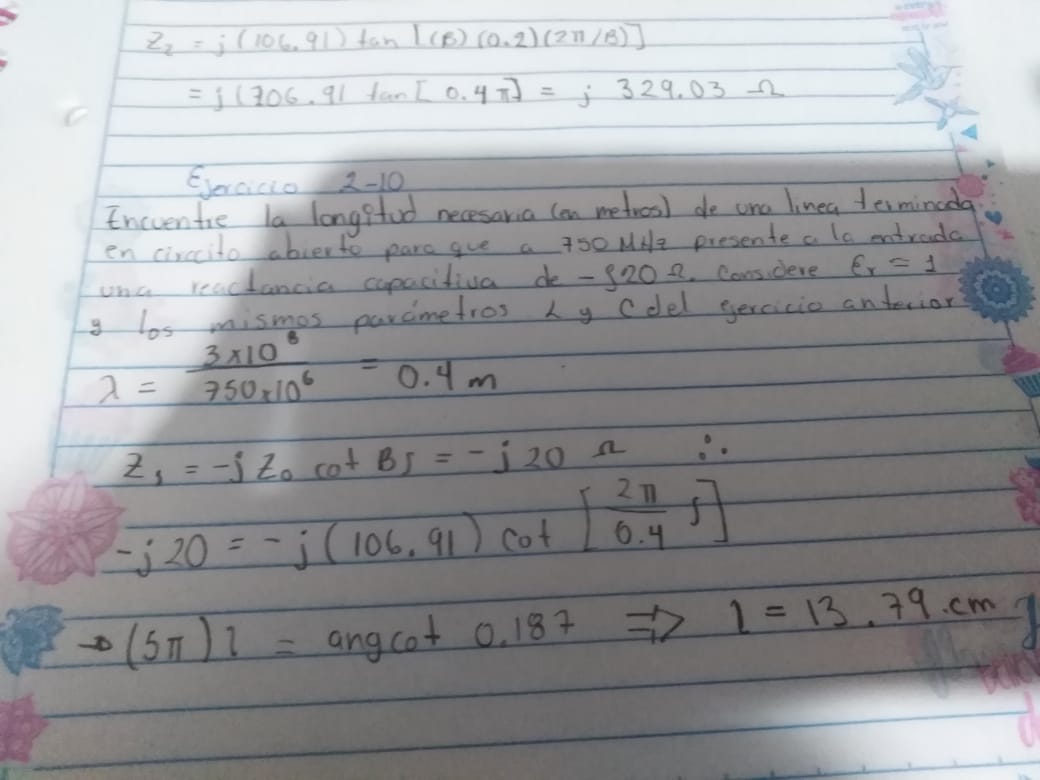 Z₂ = j(106.91) tan [(B)(0.2)(2π/B)]
= j(106.91 tan[0.4π] = j 329.03 Ω
Ejercicio 2-10
Encuentre la longitud necesaria (en metros) de una linea terminada
en circcito abierto para que a 750 MHz presente a la entrada
una reactancia capacitiva de -j20 Ω. Considere Er = 1
y los mismos parámetros L y C del ejercicio anterior
λ = 3x10⁸ / 750x10⁶ = 0.4 m
Z₁ = -j Z₀ cot Bl = -j20 Ω ∴
-j20 = -j(106.91) cot [2π/0.4 l]
→ (5π) l = angcot 0.187 ⇒ l = 13.79.cm